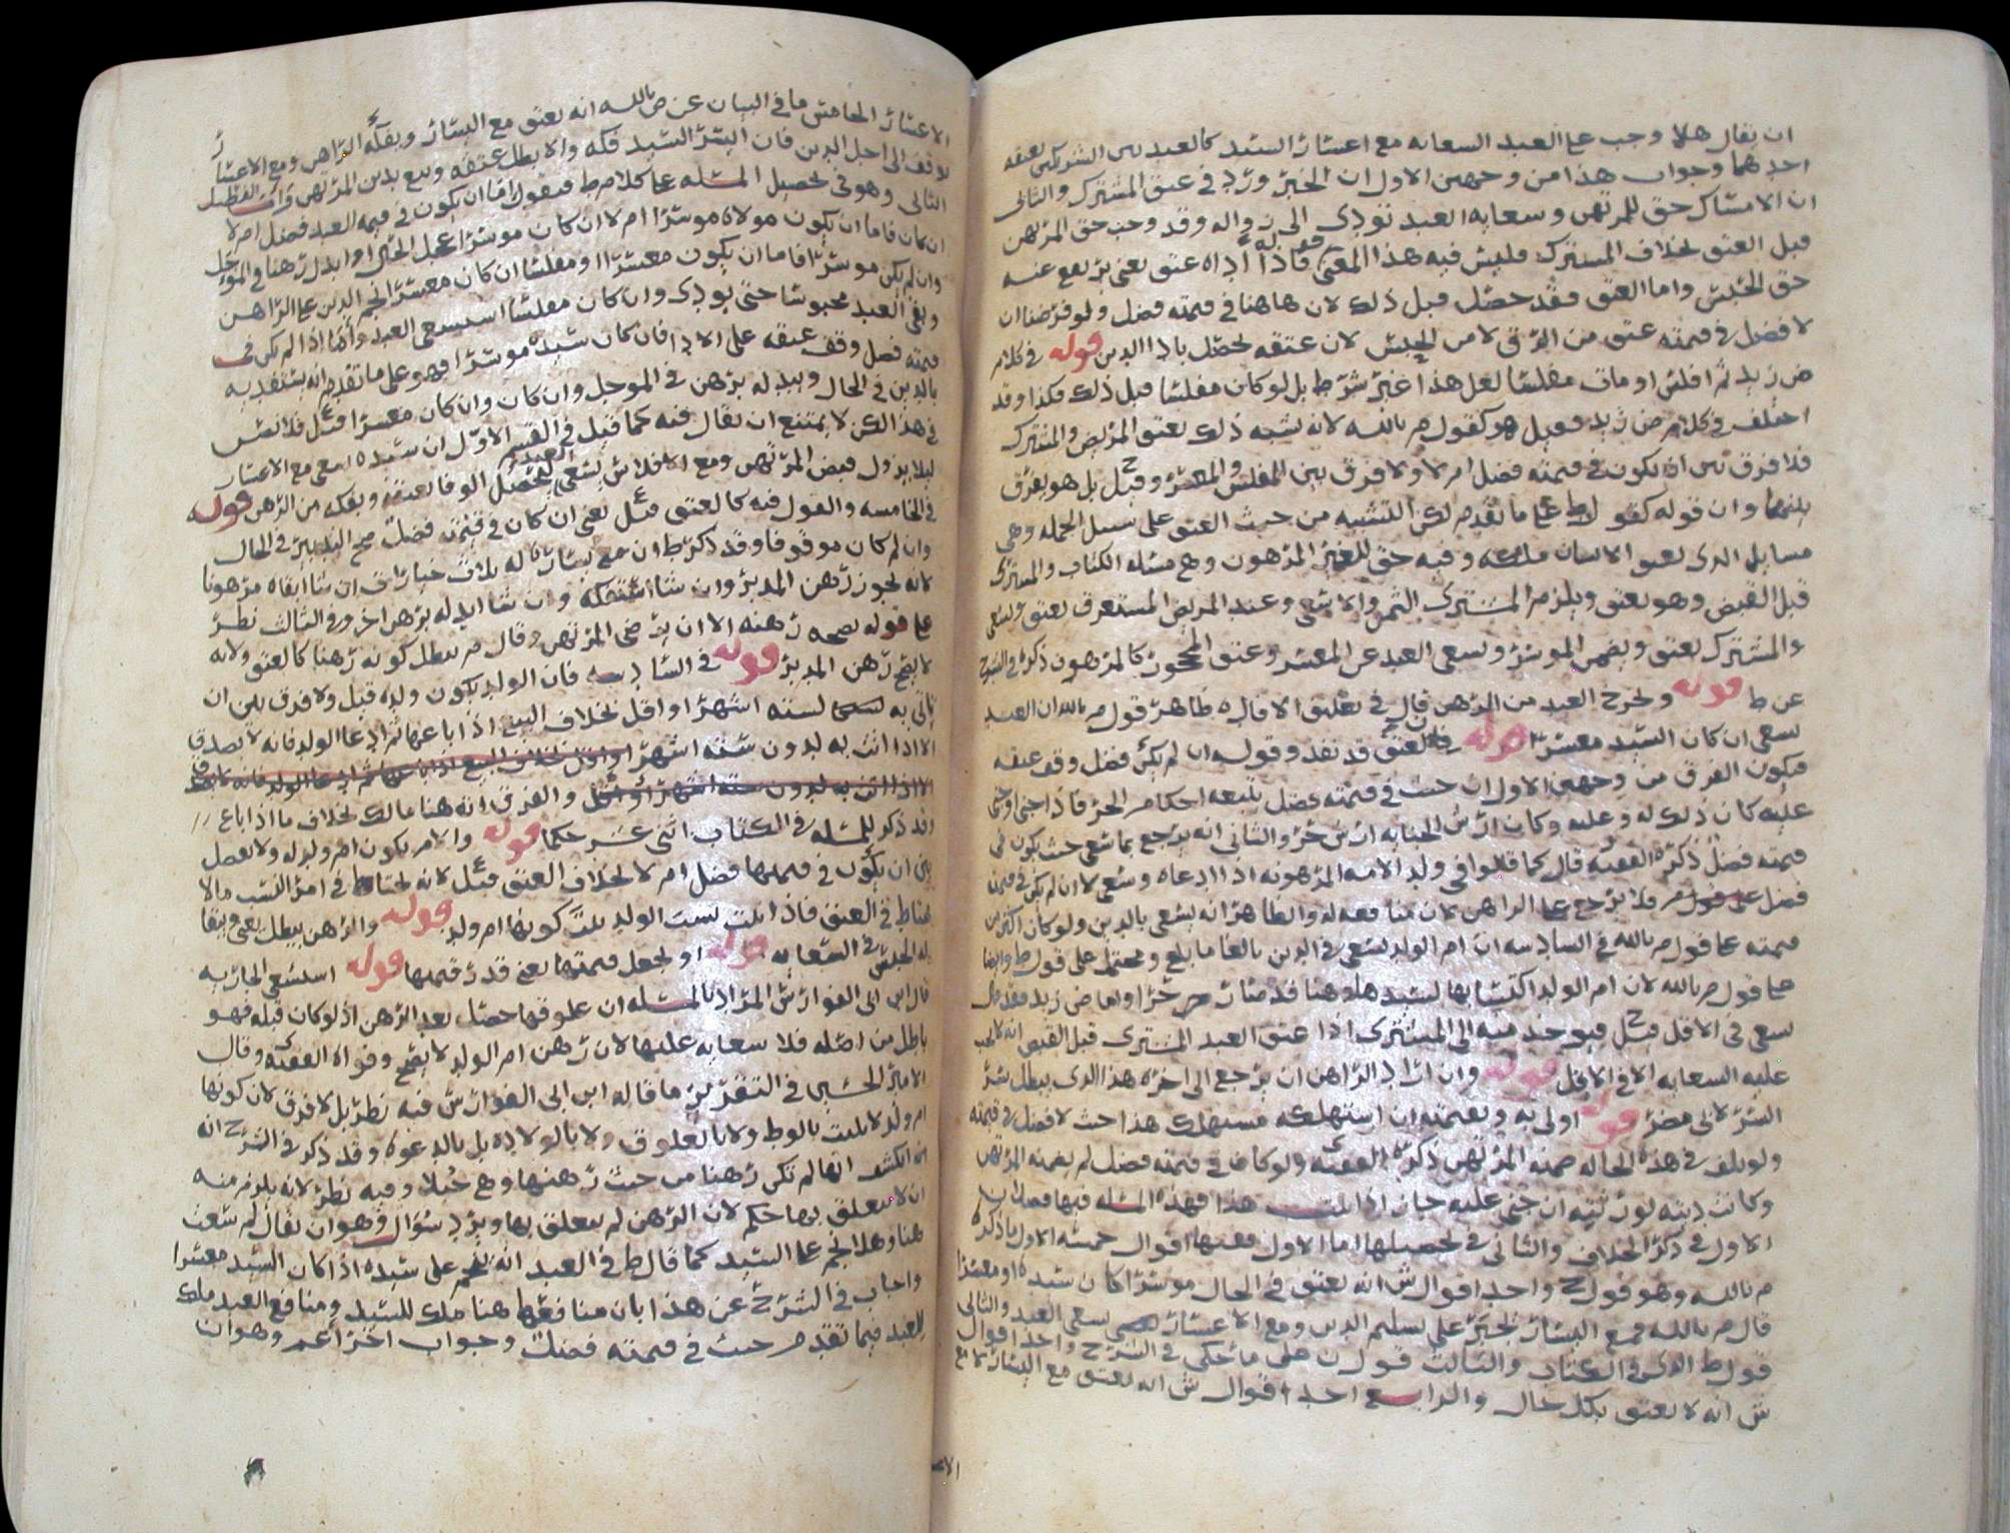 ان يقال هلا وجب على العبد السعايه مع اعسار السيد كالعبد بين الشريكين يعتقه
احدهما وجواب هذا من وجهين الاول ان الخبر ورد في عتق المشترك والثاني
ان الامساك حق للمرتهن وسعايه العبد تؤدي الى زواله وقد وجب حق المرتهن
قبل العتق بخلاف المشترك فليس فيه هذا المعنى قوله فاذا اداه عتق يعني يرتفع عنه
حق الحبس واما العتق فقد حصل قبل ذلك لان هاهنا في قيمته فضل ولو فرضنا ان
لا فضل في قيمته عتق من الرق لا من الحبس لان عتقه يحصل بادا الدين قوله في كلام
ض زيد ثم افلس او مات مفلسا لعل هذا غير شرط بل لو كان مفلسا قبل ذلك فكذا وقد
اختلف في كلام ض زيد فقيل هو كقول م بالله لانه شبه ذلك بعتق المريض والمشترك
فلا فرق بين ان يكون في قيمته فضل ام لا ولا فرق بين المفلس والمعسر وقيل ح بل هو يفرق
بينهما وان قوله كقول ط على ما تقدم لكن التشبيه من حيث العتق على سبيل الجمله وهي
مسايل الذي يعتق الانسان ملكه وفيه حق للغير المرهون وهي مسله الكتاب والمشترى
قبل القبض وهو يعتق ويلزم المشتري الثمن والا سعى وعند المريض المستغرق يعتق ويسعى
والمشترك يعتق ويضمن الموسر ويسعى العبد عن المعسر وعتق المحجور كالمرهون ذكره في الشرح
عن ط قوله ويخرج العبد من الرهن قال في تعليق الافاده ظاهر قول م بالله ان العبد
يسعى ان كان السيد معسرا قوله لان العتق قد نفذ وقوله ان لم يكن فضل وقف عتقه
فيكون الفرق من وجهين الاول ان حيث في قيمته فضل يتبعه احكام الحر فاذا جنى او جني
عليه كان ذلك له وعليه وكان ارش الجنايه ارش حر والثاني انه يرجع بما سعى حيث يكون في
قيمته فضل ذكره الفقيه قال كما قالوا في ولد الامه المرهونه اذا ادعاه وسعى لا ان لم يكن في قيمته
فضل على قول م فلا يرجع على الراهن لان منافعه له والظاهر انه يسعى بالدين ولو كان اكثر من
قيمته على قول م بالله في السادسه ان ام الولد تسعى في الدين بالغا ما بلغ ومحتمل على قول ط وايضا
على قول م بالله لان ام الولد اكتسابها لسيدها وهنا قد صار حرا واما ض زيد فقد قال
يسعى في الاقل قيل ح فيوخذ منه الى المشتري اذا عتق العبد المشترى قبل القبض انه لا يجب
عليه السعايه الا في الاقل قوله وان اراد الراهن ان يرجع الى اخره هذا الذي يبطل شر
الشر لا في مضر قوله اولى به وبقيمته ان استهلكه مستهلك هذا حيث لا فضل في قيمته
ولو تلف في هذه الحاله ضمنه المرتهن ذكره الفقيه ولو كان في قيمته فضل لم يضمنه المرتهن
وكانت ديته لورثته ان جني عليه جان اذا ثبت هذا فهذه المسله فيها فصلان
الاول في ذكر الخلاف والثاني في تحصيلها اما الاول ففيها اقوال خمسه الاول ما ذكره
م بالله وهو قول ح واحد اقوال ش انه يعتق في الحال موسرا كان سيده او معسرا
قال م بالله فمع اليسار يجبر على تسليم الدين ومع الاعسار يسعى العبد والثاني
قول ط الذي في الكتاب والثالث قول ن على ما حكي في الشرح واحد اقوال
ش انه لا يعتق بكل حال والرابع احد اقوال ش انه يعتق مع اليسار لا مع
الا
الاعسار الخامس ما في البيان عن ض بالله انه يعتق مع اليسار ويفكه الراهن ومع الاعسار
يوقف الى اجل الدين فان ايسر السيد فكه والا بطل عتقه وبيع بدين المرتهن واما الفصل
الثاني وهو في تحصيل المسله على كلام ط فيقول اما ان يكون في قيمه العبد فضل ام لا
ان كان فاما ان يكون مولاه موسرا ام لا ان كان موسرا عجل الحال او ابدل رهنا في الموجل
وان لم يكن موسرا فاما ان يكون معسرا او مفلسا ان كان معسرا نجم الدين على الراهن
وبقي العبد محبوسا حتى يودى وان كان مفلسا استسعى العبد واما اذا لم يكن في
قيمته فضل وقف عتقه على الادا فان كان سيده موسرا فهو على ما تقدم انه يستفديه
بالدين في الحال ويبدله برهن في الموجل وان كان وان كان معسرا قيل ع فلا نص
في هذا لكن لا يمتنع ان يقال فيه كما قيل في القسم الاول ان سيده يسعى مع الاعسار
ليلا يزول قبض المرتهن ومع الافلاس يسعى العبد ليحصل الوفا بعتقه ويفكه من الرهن قوله
في الخامسه والقول فيه كالعتق قيل ع يعني ان كان في قيمته فضل صح التدبير في الحال
وان لم كان موقوفا وقد ذكر ط ان مع يساره له ثلاث خيارات ان شا ابقاه مرهونا
لانه يجوز رهن المدبر وان شا استفكه وان شا ابدله برهن اخر وفي الثالث نظر
على قوله بصحه رهنه الا ان يرضى المرتهن وقال م يبطل كونه رهنا كالعتق ولانه
لا يصح رهن المدبر قوله في السادسه فان الولد يكون ولده قيل ولا فرق بين ان
تاتي به لسته اشهر او اقل بخلاف البيع اذا باعها ثم ادعا الولد فانه لا يصدق
الا اذا اتت به لدون سته اشهر او اقل بخلاف البيع اذا باعها ثم ادعا الولد فانه لا يصدق
الا اذا اتت به لدون سته اشهر او اقل والفرق انه هنا مالك بخلاف ما اذا باع
وقد ذكر للمسله في الكتاب اثني عشر حكما قوله والامه تكون ام ولد له ولا فصل
بين ان يكون في قيمتها فضل ام لا بخلاف العتق قيل ع لانه يحتاط في امر النسب ما لا
يحتاط في العتق فاذا ثبت نسب الولد ثبت كونها ام ولد قوله والرهن يبطل يعني ويبقا
له الحبس في السعايه قوله او لجعل قيمتها يعني قدر قيمتها قوله استسعى الجاريه
قال ابن ابي الفوارس المراد بالمسله ان علوقها حصل بعد الرهن اذ لو كان قبله فهو
باطل من اصله فلا سعايه عليها لان رهن ام الولد لا يصح وقواه الفقيه وقال
الامير الحسين في التقرير ما قاله ابن ابي الفوارس فيه نظر بل لا فرق لان كونها
ام ولد لا يثبت بالوط ولا بالعلوق ولا بالولاده بل بالدعوه وقد ذكر في الشرح انه
انكشف انها لم تكن رهنا من حيث رهنها وهي حبلى وفيه نظر لانه يلزم منه
ان لا يتعلق بها حكم لان الرهن لم يتعلق بها ويرد سؤال وهو ان يقال لم سعت
هنا وهلا نجم على السيد كما قال ط في العبد انه ينجم على سيده اذا كان السيد معسرا
واجاب في الشرح عن هذا بان منافعها هنا ملك للسيد ومنافع العبد ملك
للعبد فيما تقدم حيث في قيمته فضل وجواب اخر اعم وهو ان